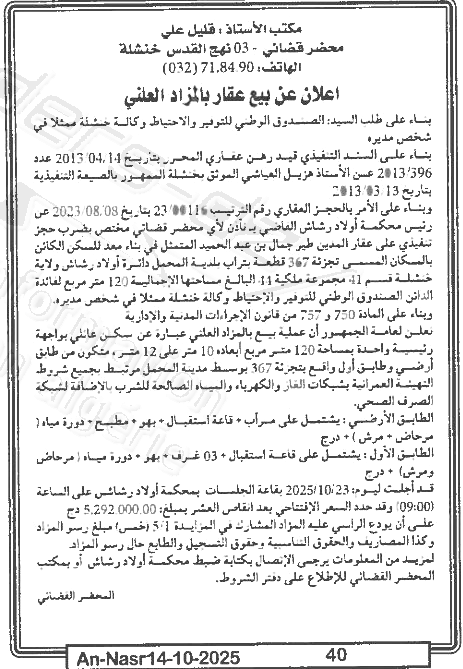 مكتب الأستاذ : قليل علي
محضر قضائي - 03 نهج القدس خنشلة
الهاتف: 71.84.90 (032)
اعلان عن بيع عقار بالمزاد العلني
بناء على طلب السيد: الصندوق الوطني للتوفير والاحتياط وكالة خنشلة ممثلا في
شخص مديره
بناء على السند التنفيذي قيد رهن عقاري المحرر بتاريخ 2013/04/14 عدد
2013/396 عن الأستاذ هزيل العياشي الموثق بخنشلة الممهور بالصيغة التنفيذية
بتاريخ 2013/03/13
وبناء على الأمر بالحجز العقاري رقم الترتيب 23/00116 بتاريخ 2023/08/08 عن
رئيس محكمة أولاد رشاش القاضي بـ نأذن لأي محضر قضائي مختص بضرب حجز
تنفيذي على عقار المدين طير جمال بن عبد الحميد المتمثل في بناء معد للسكن الكائن
بالسكان المسمى تجزئة 367 قطعة بتراب بلدية المحمل دائرة أولاد رشاش ولاية
خنشلة قسم 41 مجموعة ملكية 44 البالغ مساحتها الإجمالية 120 متر مربع لفائدة
الدائن الصندوق الوطني للتوفير والاحتياط وكالة خنشلة ممثلا في شخص مديره.
وبناء على المادة 750 و 757 من قانون الإجراءات المدنية والإدارية
نعلن لعامة الجمهور أن عملية بيع بالمزاد العلني عبارة عن سكن عائلي بواجهة
رئيسية واحدة بمساحة 120 متر مربع أبعاده 10 متر على 12 متر ، متكون من طابق
أرضي وطابق أول واقع بتجزئة 367 بوسط مدينة المحمل مرتبط بجميع شروط
التهيئة العمرانية بشبكات الغاز والكهرباء والمياه الصالحة للشرب بالاضافة لشبكة
الصرف الصحي.
الطابق الأرضي : يشتمل على مرآب + قاعة استقبال + بهو + مطبخ + دورة مياه (
مرحاض + مرش ) + درج
الطابق الأول : يشتمل على قاعة استقبال + 03 غرف + بهو + دورة مياه ( مرحاض
ومرش) + درج
قد أجلت ليوم : 2025/10/23 بقاعة الجلسات بمحكمة أولاد رشاش على الساعة
(09:00) وقد حدد السعر الإفتتاحي بعد انقاص العشر بمبلغ: 5.292.000.00 دج
على أن يودع الراسي عليه المزاد المشارك في المزايدة 5/1 (خمس) مبلغ رسو المزاد
وكذا المصاريف والحقوق التناسبية وحقوق التسجيل والطابع حال رسو المزاد.
لمزيد من المعلومات يرجى الإتصال بكتابة ضبط محكمة أولاد رشاش أو بمكتب
المحضر القضائي للإطلاع على دفتر الشروط.
المحضر القضائي
An-Nasr14-10-2025
40